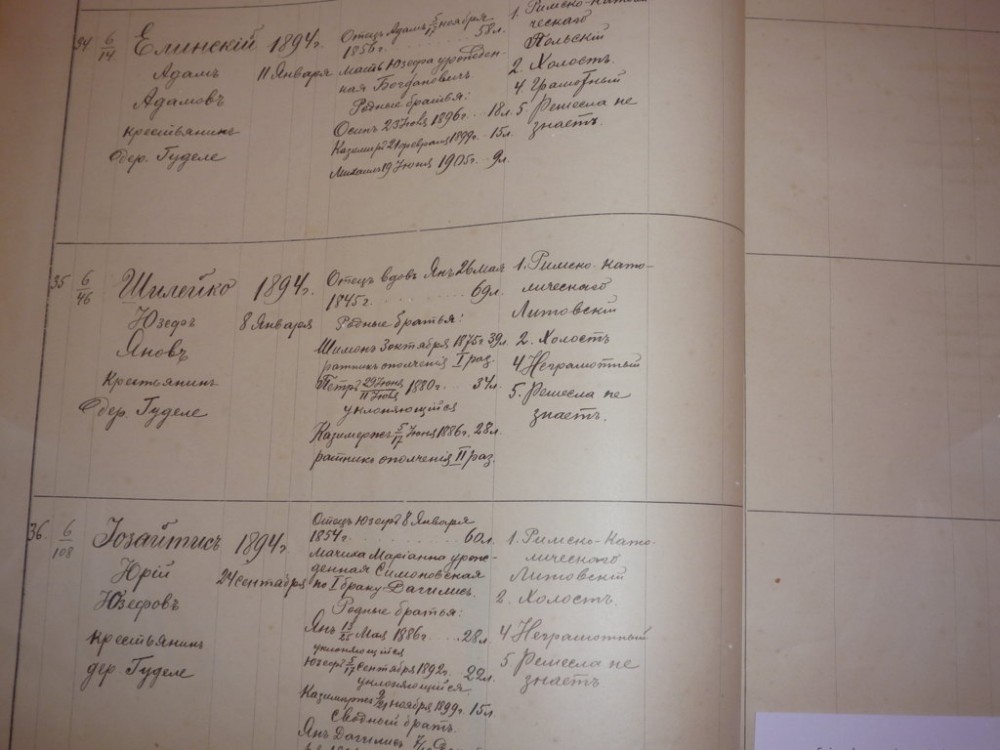 34 6/14 Елинскій 1894г.
Адамъ 11 Января
Адамовъ
крестьянинъ
дер. Гуделе
Отецъ Адамъ 5/17 ноября
1856г. 58л.
Мать Юзефа урожден-
ная Богдановичъ.
Родные братья:
Осипъ 23 Іюня 1896г. 18л.
Казимиръ 21 февраля 1899г. 15л.
Михаилъ 19 Іюня 1905г. 9л.
1. Римско-католи-
ческаго
Польскій
2. Холостъ.
4. Грамотный
5. Ремесла не
знаетъ.
35 6/46 Шилейко 1894г.
Юзефъ 8 Января
Яновъ
Крестьянинъ
дер. Гуделе
Отецъ вдовъ Янъ 26 мая
1845г. 69л.
Родные братья:
Шимонъ 3 октября 1875г 39л.
ратникъ ополченія I раз.
Петръ 29 Іюня/11 Іюля 1880г. 34л.
уклоняющійся
Казимержъ 5/17 Іюня 1886г. 28л.
ратникъ ополченія II раз.
1. Римско-като-
лическаго
Литовскій
2. Холостъ
4 Неграмотный
5. Ремесла не
знаетъ.
36. 6/108 Іозайтисъ 1894г.
Юрій 24 сентября
Юзефовъ
крестьянинъ
дер. Гуделе
Отецъ Юзефъ 8 Января
1854г. 60л.
Мачиха Маріанна урож-
денная Симоновская
по I браку Дагилисъ.
Родные братья:
Янъ 13/25 Мая 1886г. 28л
уклоняющійся
Юзефъ 5/17 сентября 1892г. 22л.
уклоняющійся
Казимиръ 9/21 ноября 1899г. 15л.
Сводный братъ.
Янъ Дагилисъ
1. Римско-като-
лическаго
Литовскій
2. Холостъ.
4 Неграмотный
5. Ремесла не
знаетъ